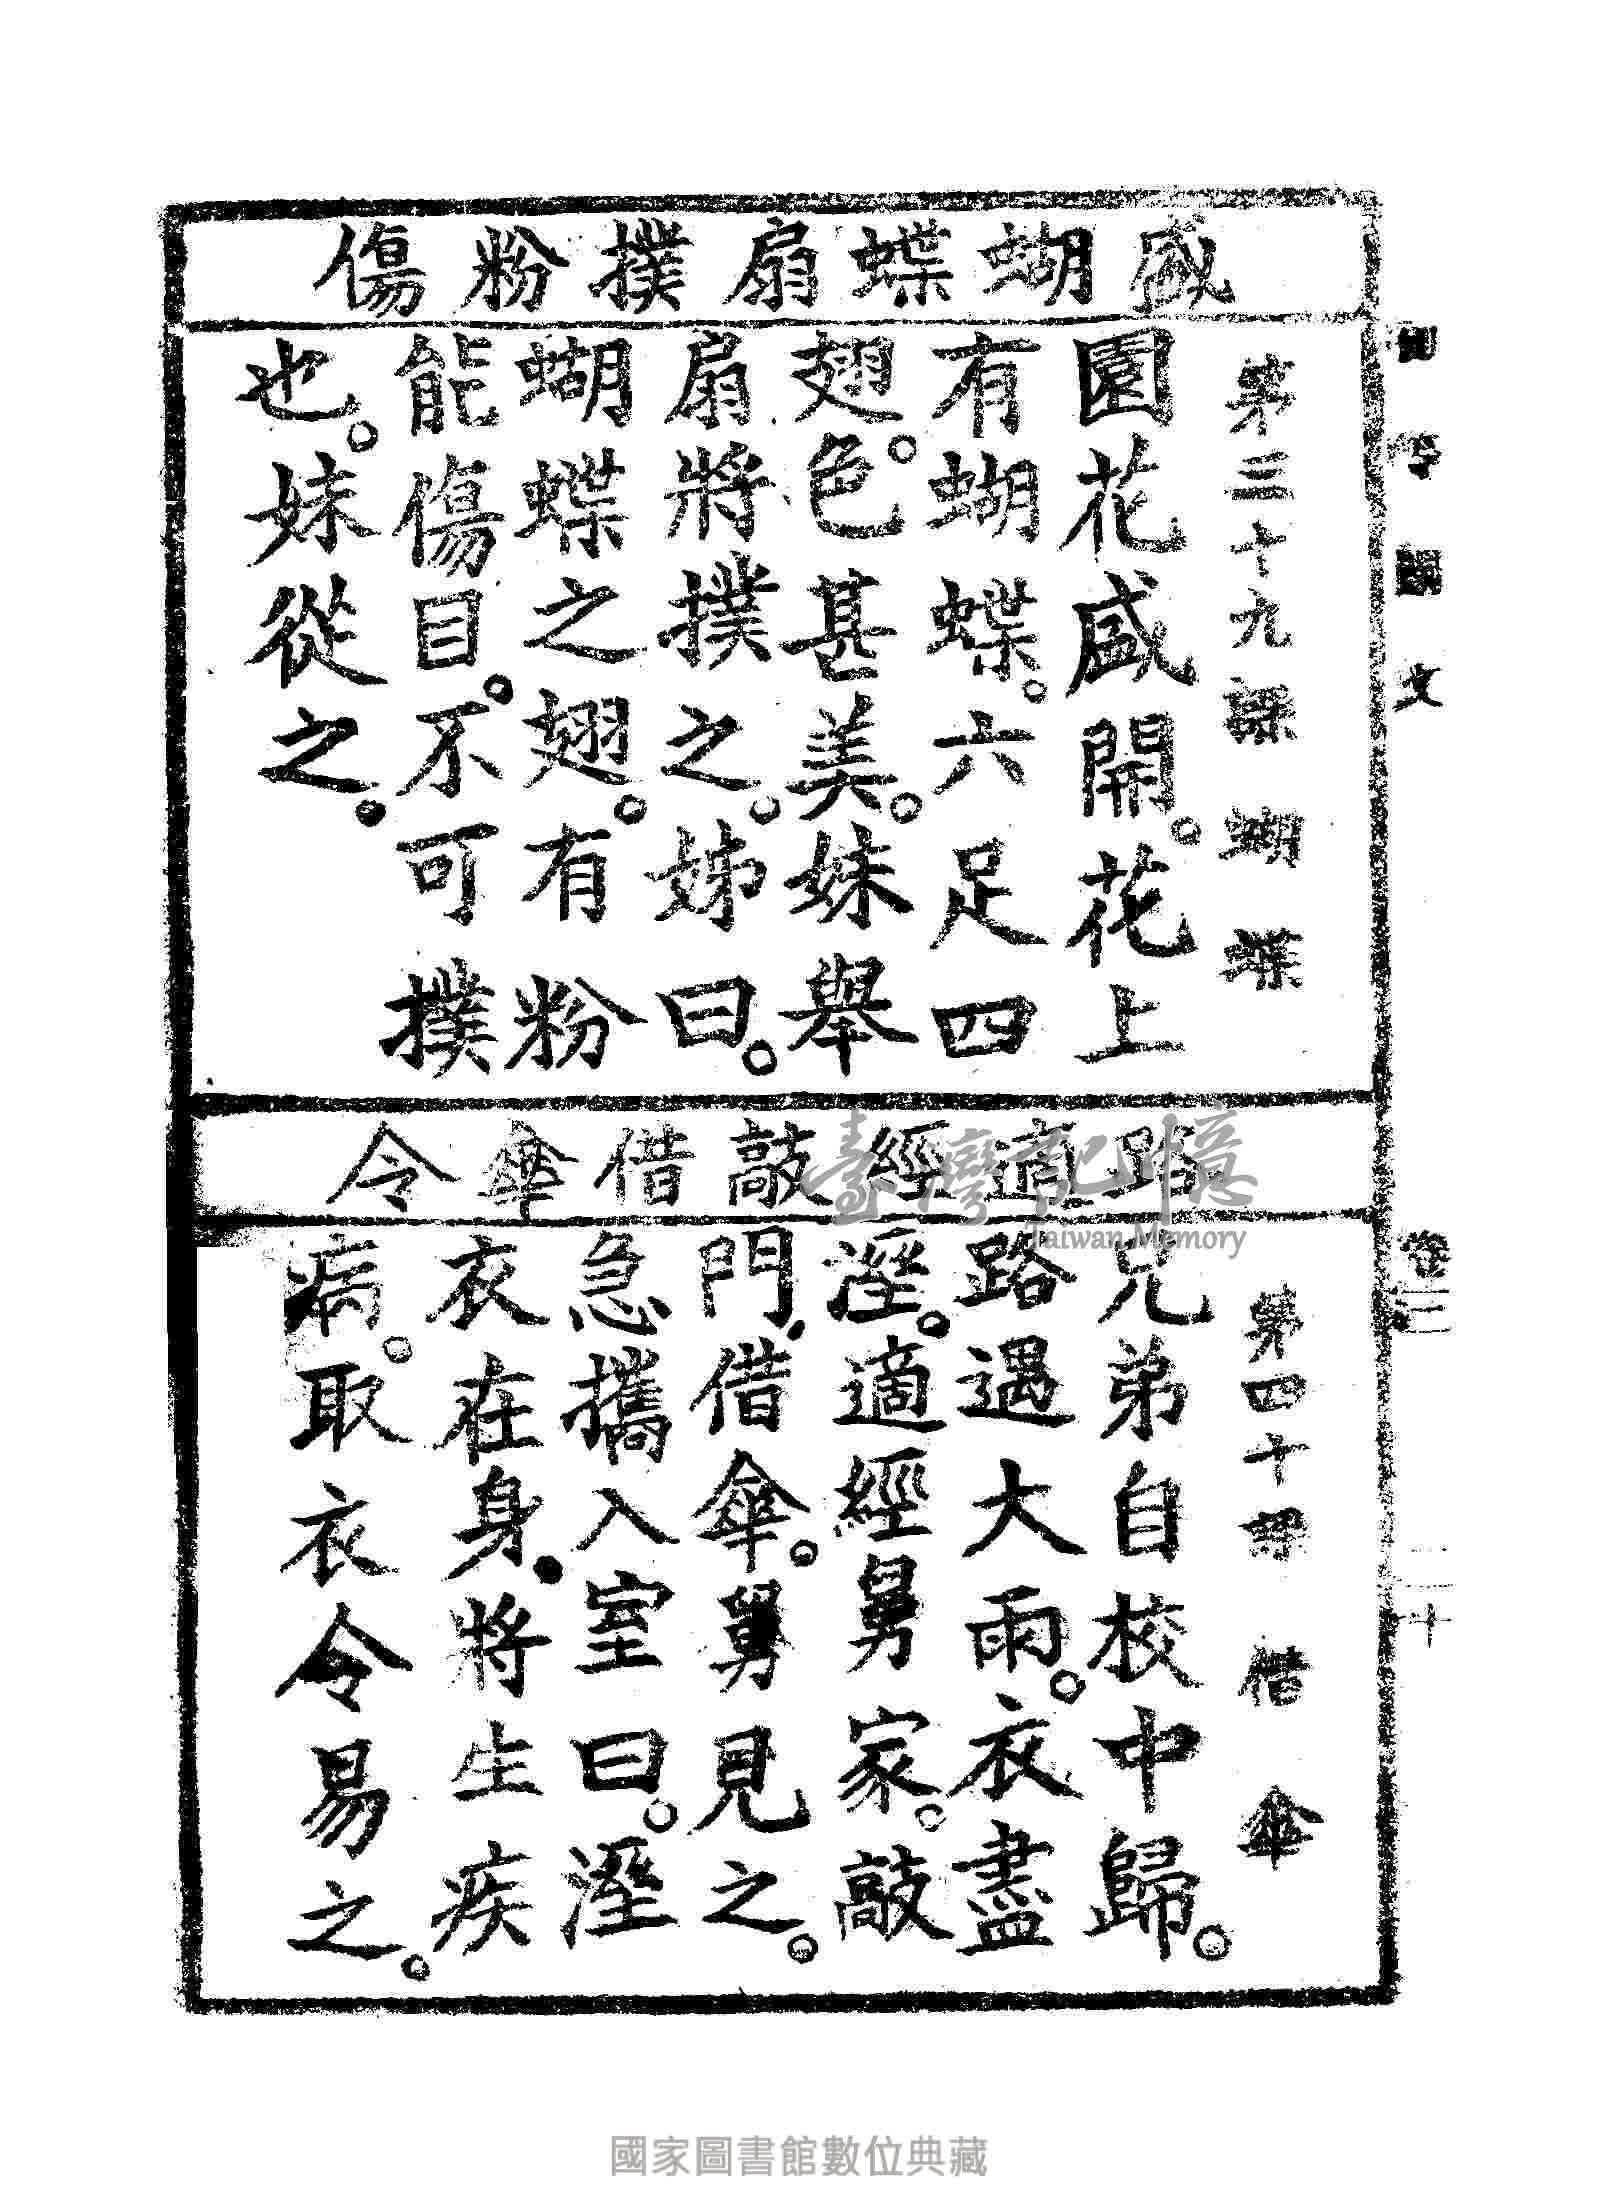 盛蝴蝶扇撲粉傷
第三十九課 蝴蝶
園花盛開。花上
有蝴蝶。六足四
翅。色甚美。妹舉
扇將撲之。姊曰。
蝴蝶之翅。有粉
能傷目。不可撲
也。妹從之。
路適經敲借傘令
第四十課 借傘
兄弟自校中歸。
路遇大雨。衣盡
溼。適經舅家。敲
門借傘。舅見之。
急攜入室曰。溼
衣在身。將生疾
病。取衣令易之。
課文
卷二
二十
臺灣記憶
Taiwan Memory
國家圖書館數位典藏